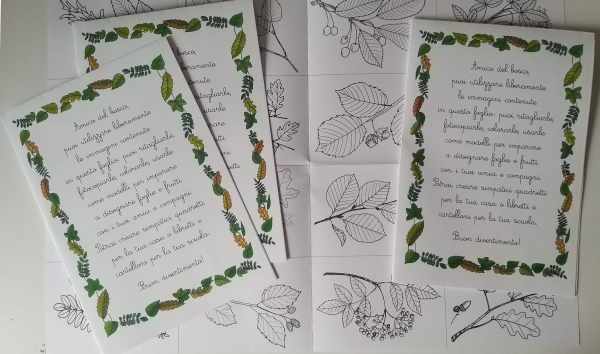 Amico del bosco,
puoi utilizzare liberamente
le immagini contenute
in questo foglio: puoi ritagliarle,
fotocopiarle, colorarle, usarle
come modelli per imparare
a disegnare foglie e frutti
con i tuoi amici e compagni.
Potrai creare simpatici quadretti
per la tua casa o libretti e
cartelloni per la tua scuola.
Buon divertimento!
bosco,
liberamente
contenute
ritagliarle,
usarle
Amico del bosco,
puoi utilizzare liberamente
le immagini contenute
in questo foglio: puoi ritagliarle,
fotocopiarle, colorarle, usarle
come modelli per imparare
a disegnare foglie e frutti
con i tuoi amici e compagni.
Potrai creare simpatici quadretti
per la tua casa o libretti e
cartelloni per la tua scuola.
Buon divertimento!